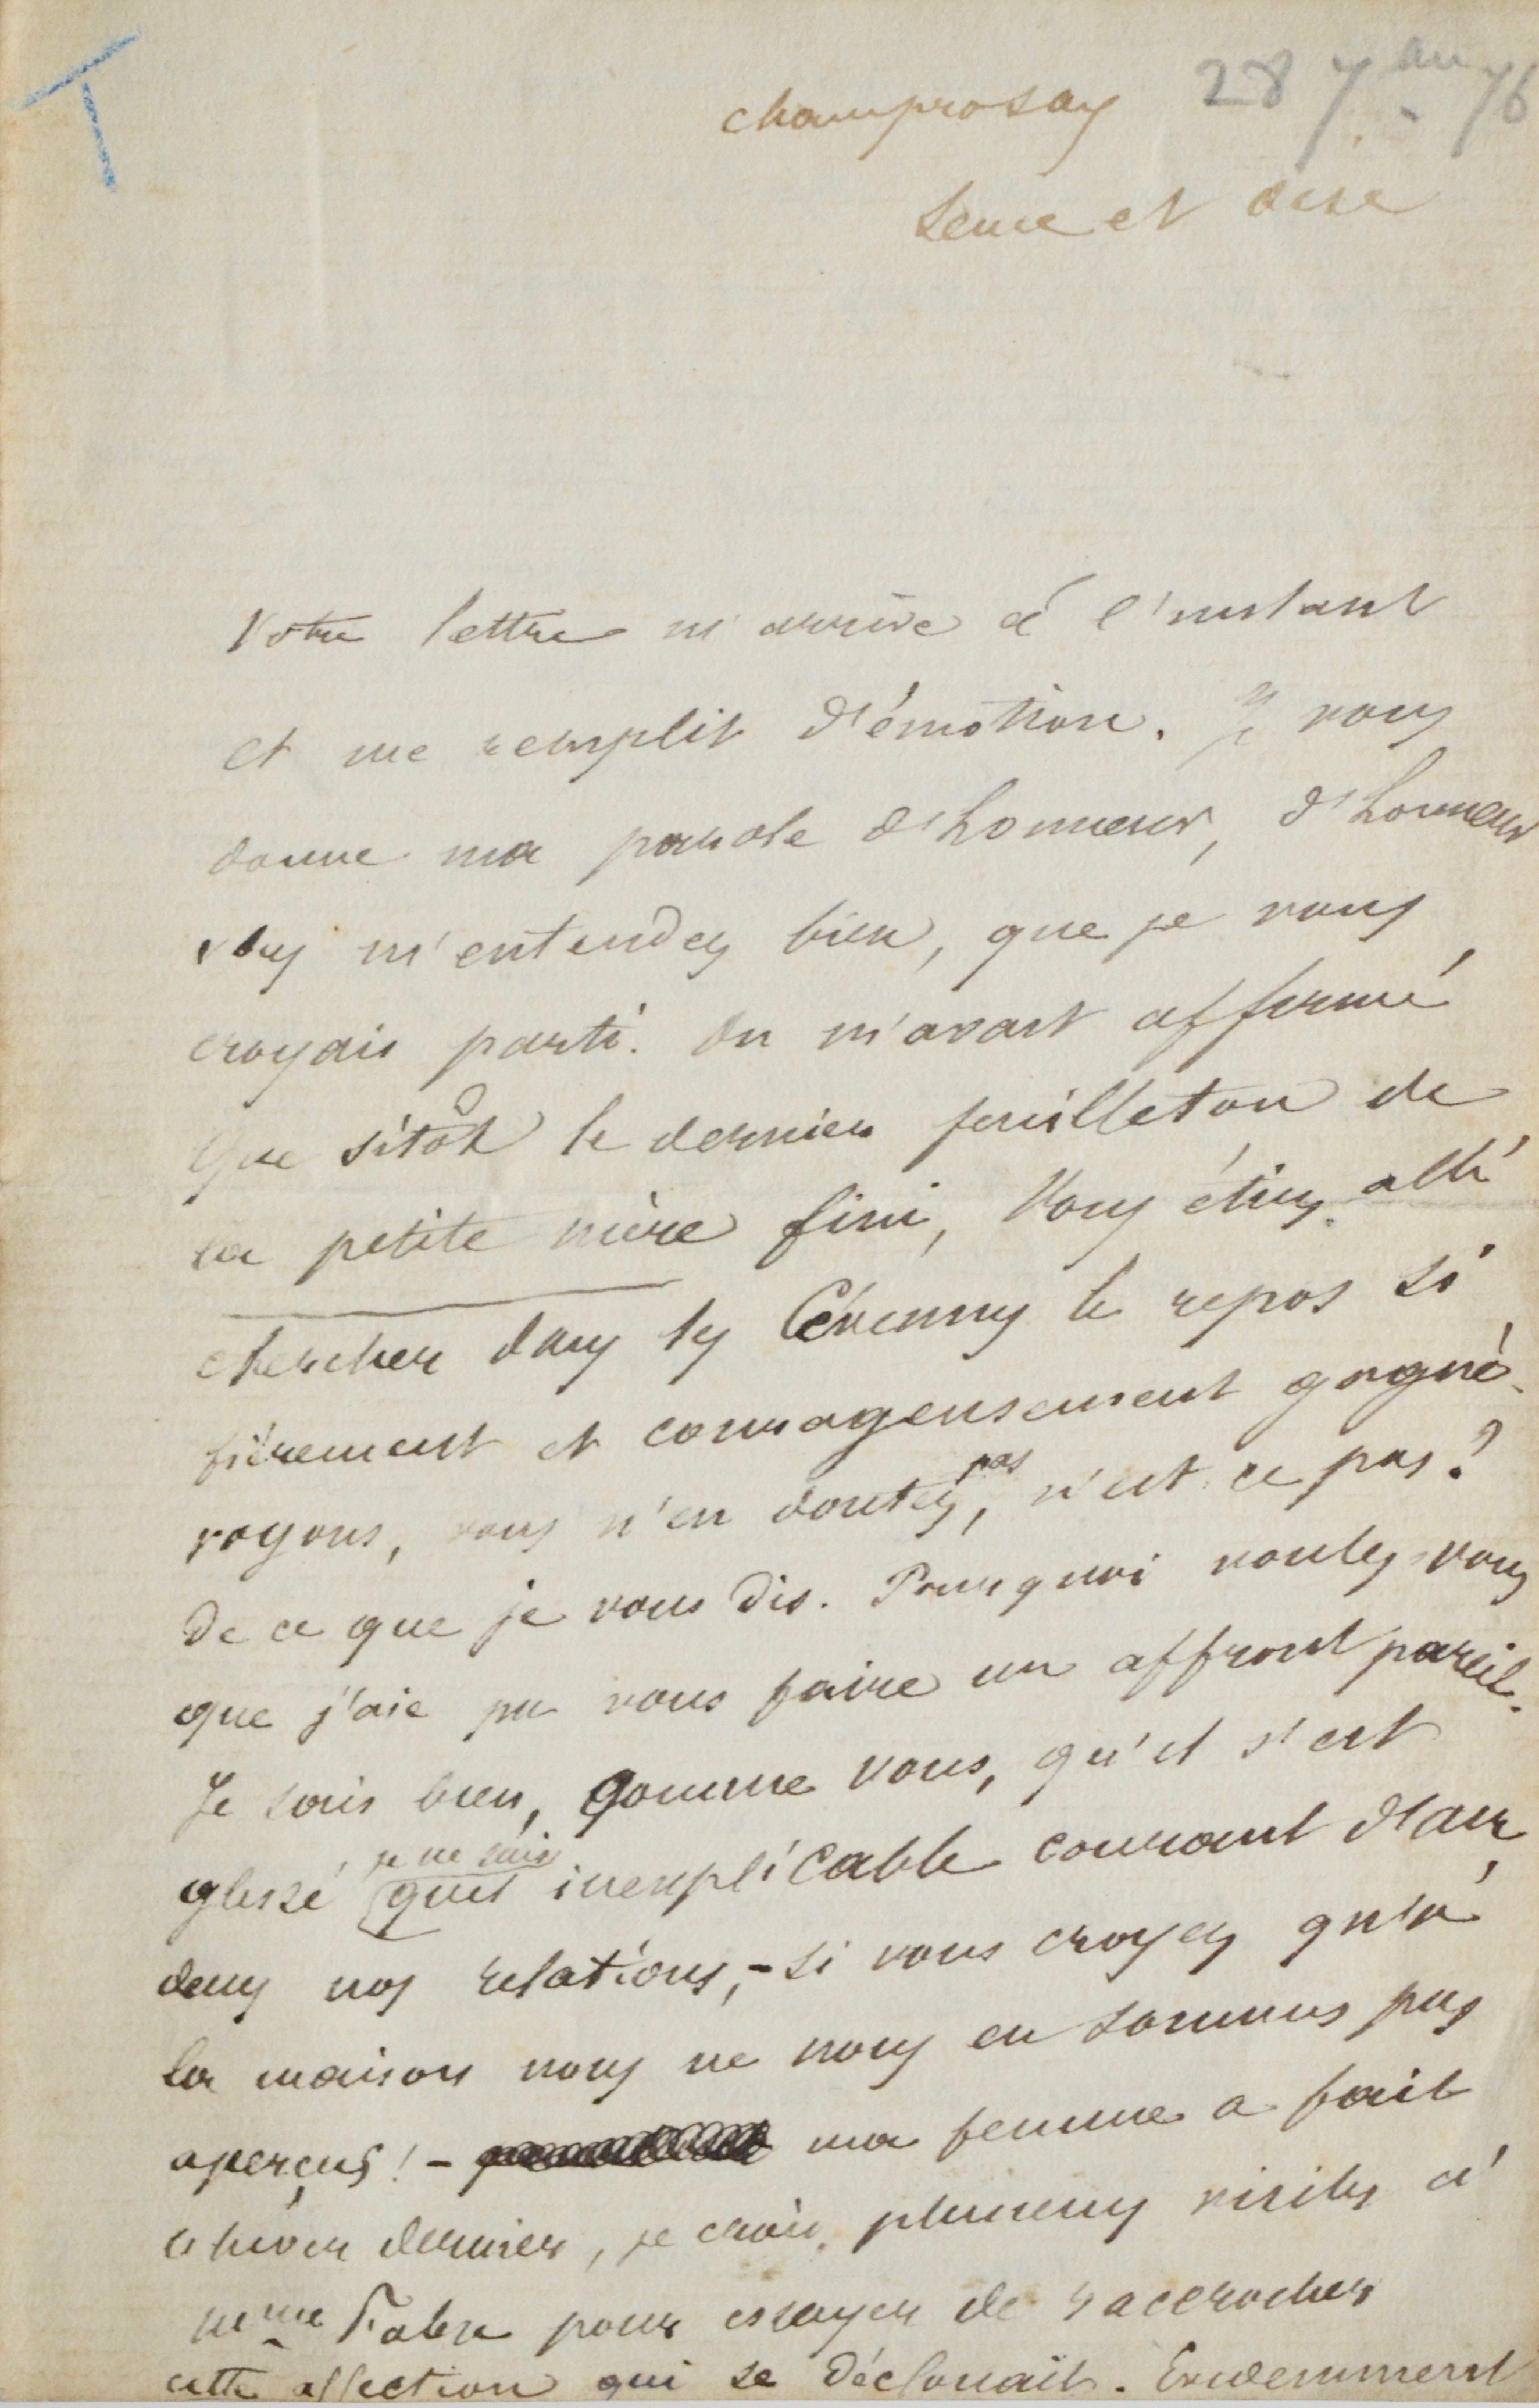 T
champrosay 28 7bre 76
Seine et oise
Votre lettre m'arrive à l'instant
et me remplit d'émotion. Je vous
donne ma parole d'honneur, d'honneur
vous m'entendez bien, que je vous
croyais parti. On m'avait affirmé
que sitôt le dernier feuilleton de
la petite mère fini, vous étiez allé
chercher dans les Cévennes le repos si
fièrement et courageusement gagné.
voyons, vous n'en doutez pas, n'est ce pas?
De ce que je vous dis. Pourquoi voulez-vous
que j'aie pu vous faire un affront pareil.
Je sais bien, comme vous, qu'il s'est
glissé je ne sais quel inexplicable courant d'air
dans nos relations, - si vous croyez qu'à
la maison nous ne nous en sommes pas
aperçus! - ma femme a fait
l'hiver dernier, je crois, plusieurs visites à
Mme Fabre pour essayer de raccrocher
cette affection qui se déclouait. Evidemment